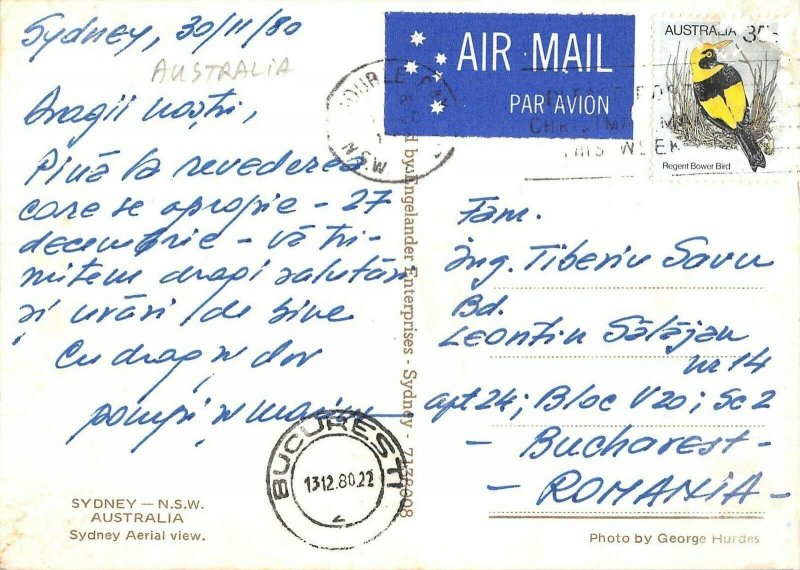 Sydney, 30/11/80
AUSTRALIA
Dragii noștri,
Pînă la revederea
care se apropie - 27
decembrie - vă tri-
mitem dragi salutări
și urări de bine
Cu drag și dor
și
AIR MAIL
PAR AVION
AUSTRALIA 35c
Regent Bower Bird
N.S.W
CHRISTMAS MA
THIS WEEK
by Engelander Enterprises - Sydney - 7138008
Fam.
Ing. Tiberiu Savu
Bd.
Leontin Sălăjan
nr 14
apt 24; Bloc V20; Sc 2
- Bucharest -
- ROMANIA -
BUCURESTI
1312.80.22
SYDNEY — N.S.W.
AUSTRALIA
Sydney Aerial view.
Photo by George Hurdes